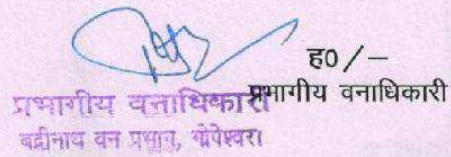 ह0/—
प्रभागीय वनाधिकारी
प्रभागीय वनाधिकारी
बद्रीनाथ वन प्रभाग, गोपेश्वर।